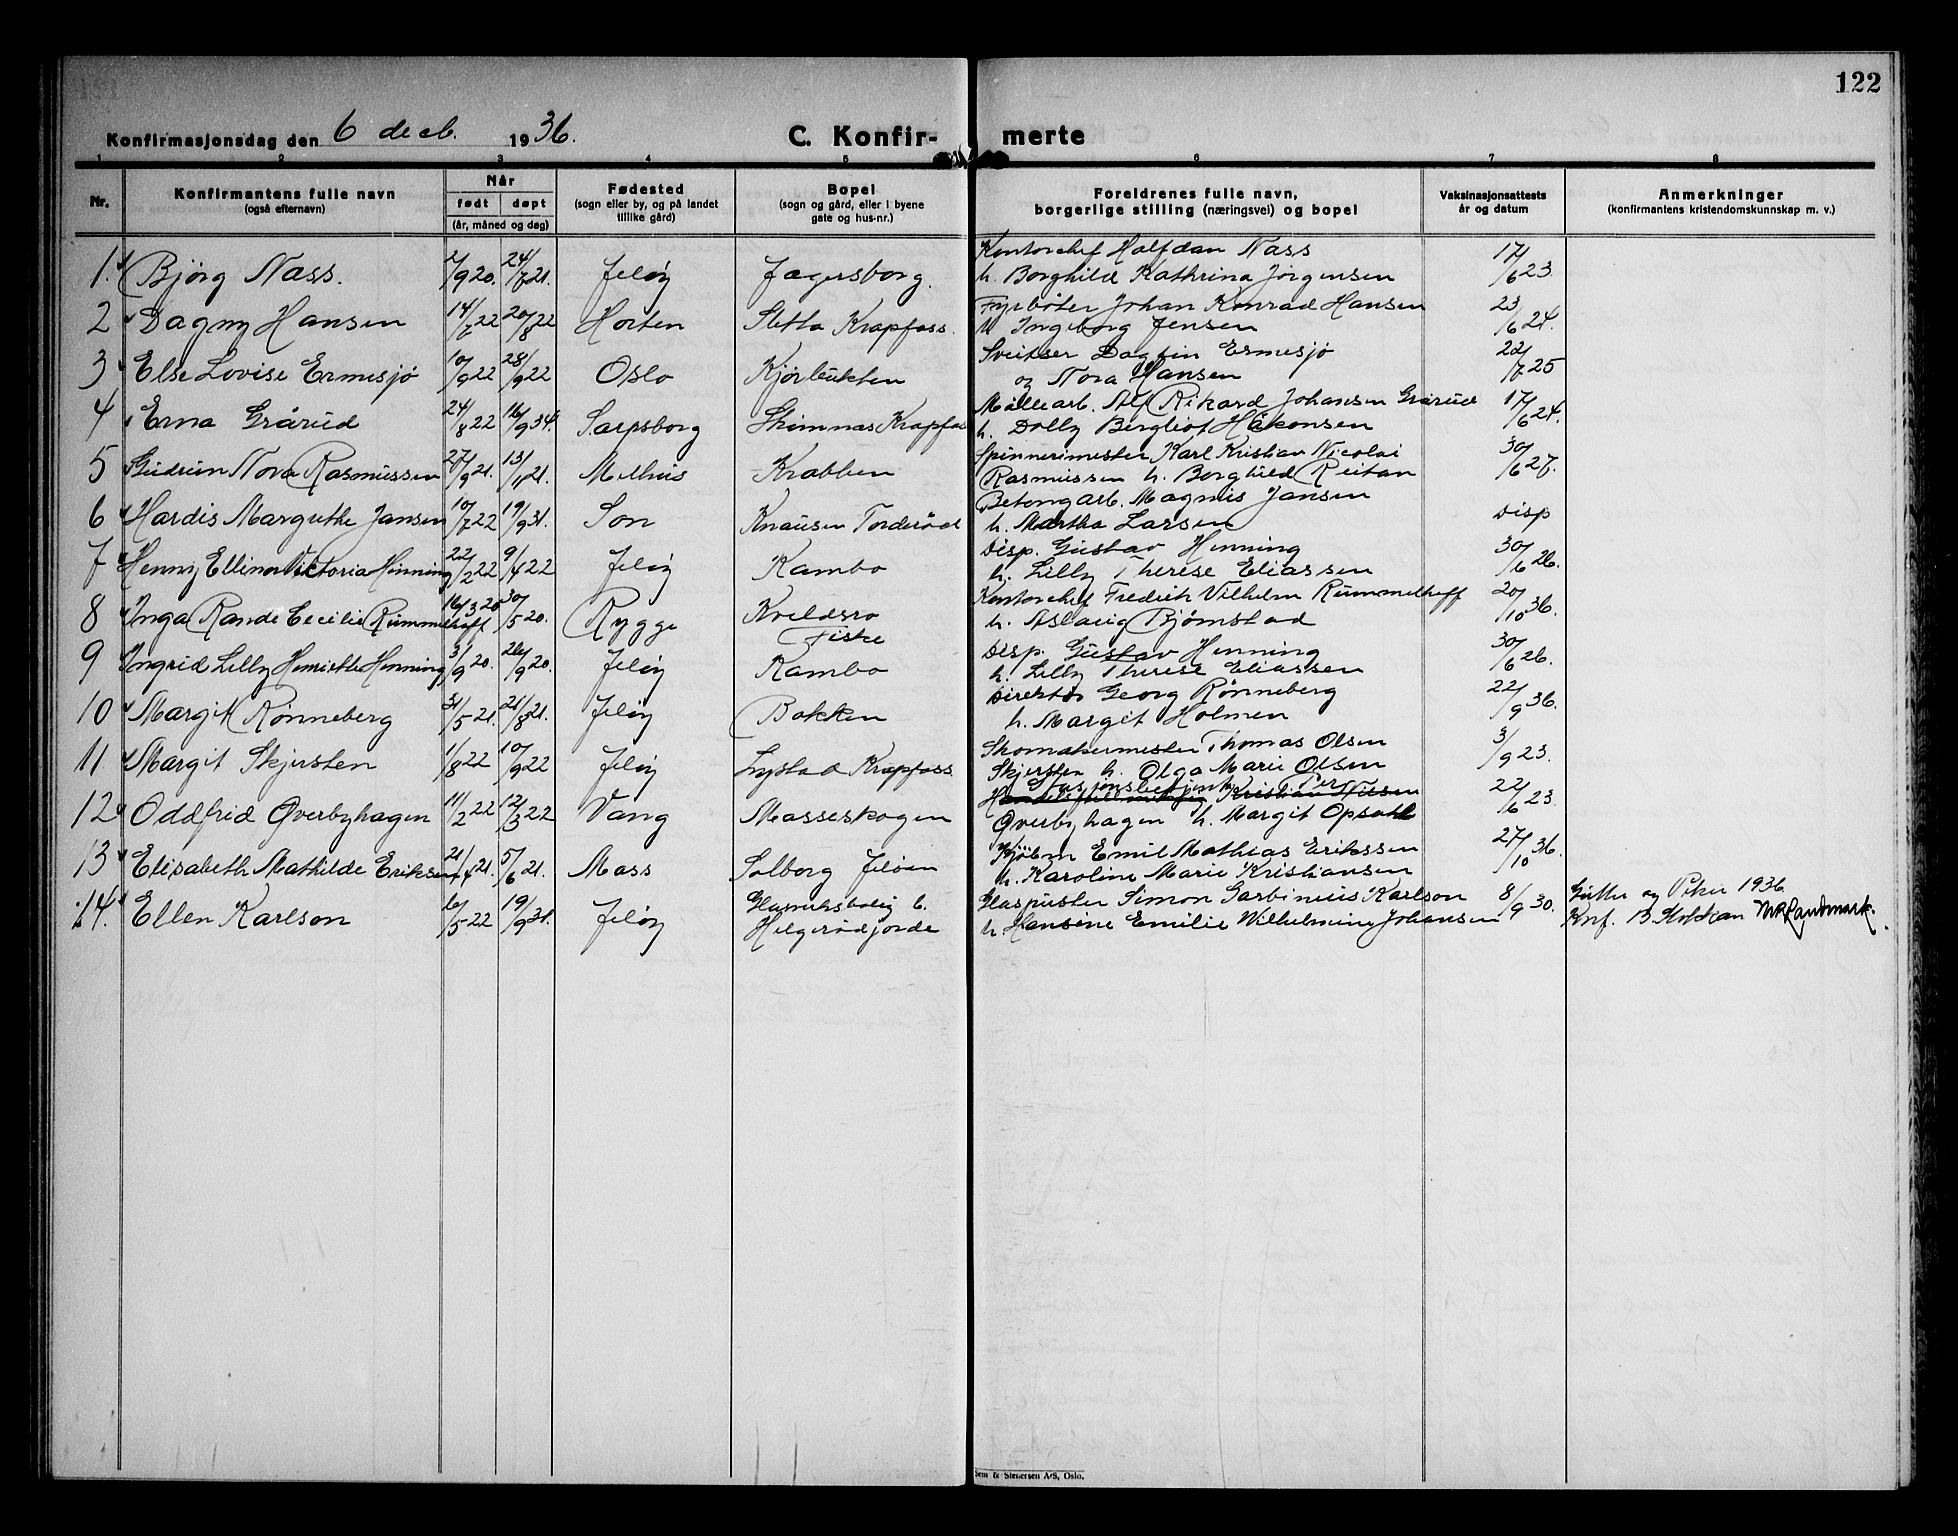 122
Konfirmasjonsdag den 6 decb. 1936. C. Konfir- merte
1 2 3 4 5 6 7 8
Nr. Konfirmantens fulle navn (også efternavn) Når født døpt (år, måned og dag) Fødested (sogn eller by, og på landet tillike gård) Bopel (sogn og gård, eller i byene gate og hus-nr.) Foreldrenes fulle navn, borgerlige stilling (næringsvei) og bopel Vaksinasjonsattests år og datum Anmerkninger (konfirmantens kristendomskunnskap m. v.)
Kontorchef Halfdan Nass
1. Bjørg Nass. /9 20. 24/7 21. Jeløy Jagersborg. h. Borghild Kathrina Jørgensen 17/6 23.
Fyrbøter Johan Konrad Hansen
2 Dagny Hansen 14/7 22 20/8 22 Horten Sletta Krapfoss. h Ingeborg Jensen 23/6 24.
Sveitser Dagfin Ermesjø
3 Else Lovise Ermesjø 10/9 22 28/9 22 Oslo Kjørbukten og Nora Hansen 22/7 25
Møllearb. Alf Rikard Johansen Grårud
4 Erna Grårud 24/8 22 16/9 34. Sarpsborg Skimnas Krapfos h. Dolly Bergliot Håkonsen 17/6 24.
Spinnerimester Karl Kristian Nicolai
5 Gudrun Nora Rasmussen 27/9 21. 13/1 21. Melhus Krabben Rasmussen h. Borghild Reitan 30/6 27.
Betongarb. Magnus Jansen
6 Hardis Margrethe Jansen 10/7 22 19/9 31. Son Knausen Torderød h. Martha Larsen Disp
Disp. Gustav Henning
7 Henny Ellinor Viktoria Henning 22/2 22 9/4 22 Jeløy Kambo h. Lilly Therese Eliassen 30/6 26.
Kontorchef Fredrik Vilhelm Rummelhoff
8 Inga Rande Cecilie Rummelhoff 16/3 20. 30/5 20. Rygge Kveldsro h. Aslaug Bjørnstad 20/10 36.
Fiske
Disp. Gustav Henning
9 Ingrid Lilly Henriette Henning 3/9 20. 26/9 20. Jeløy Kambo h. Lilly Therese Eliassen 30/6 26.
Direktør Georg Rønneberg
10 Margit Rønneberg 31/5 21. 21/8 21. Jeløy Bakken h. Margit Holmen 22/9 36.
Skomakermester Thomas Olsen
11 Margit Skjersten 1/8 22 10/9 22 Jeløy Lystad Krapfoss Skjersten h. Olga Marie Olsen 3/9 23.
Stasjonsbetjent Per
Kristian Nilsen
12 Oddfrid Øverbyhagen 11/2 22 12/3 22 Vang Masseskogen Øverbyhagen h. Margit Opsahl 22/6 23.
Kjøbm Emil Mathias Erikssen
13 Elisabeth Mathilde Eriksen 21/4 21. 5/6 21. Moss Solborg Jeløen h. Karoline Marie Kristiansen 27/10 36.
Glassverksbolig 6. Glaspuster Simon Garbinius Karlson 8/9 30. Gutter og Piker 1936
14. Ellen Karlson 6/5 22 19/9 31. Jeløy Helgerødjorde h. Hansine Emilie Wilhelmine Johansen Knf. Landmark.
Sem & Stenersen A/S, Oslo.